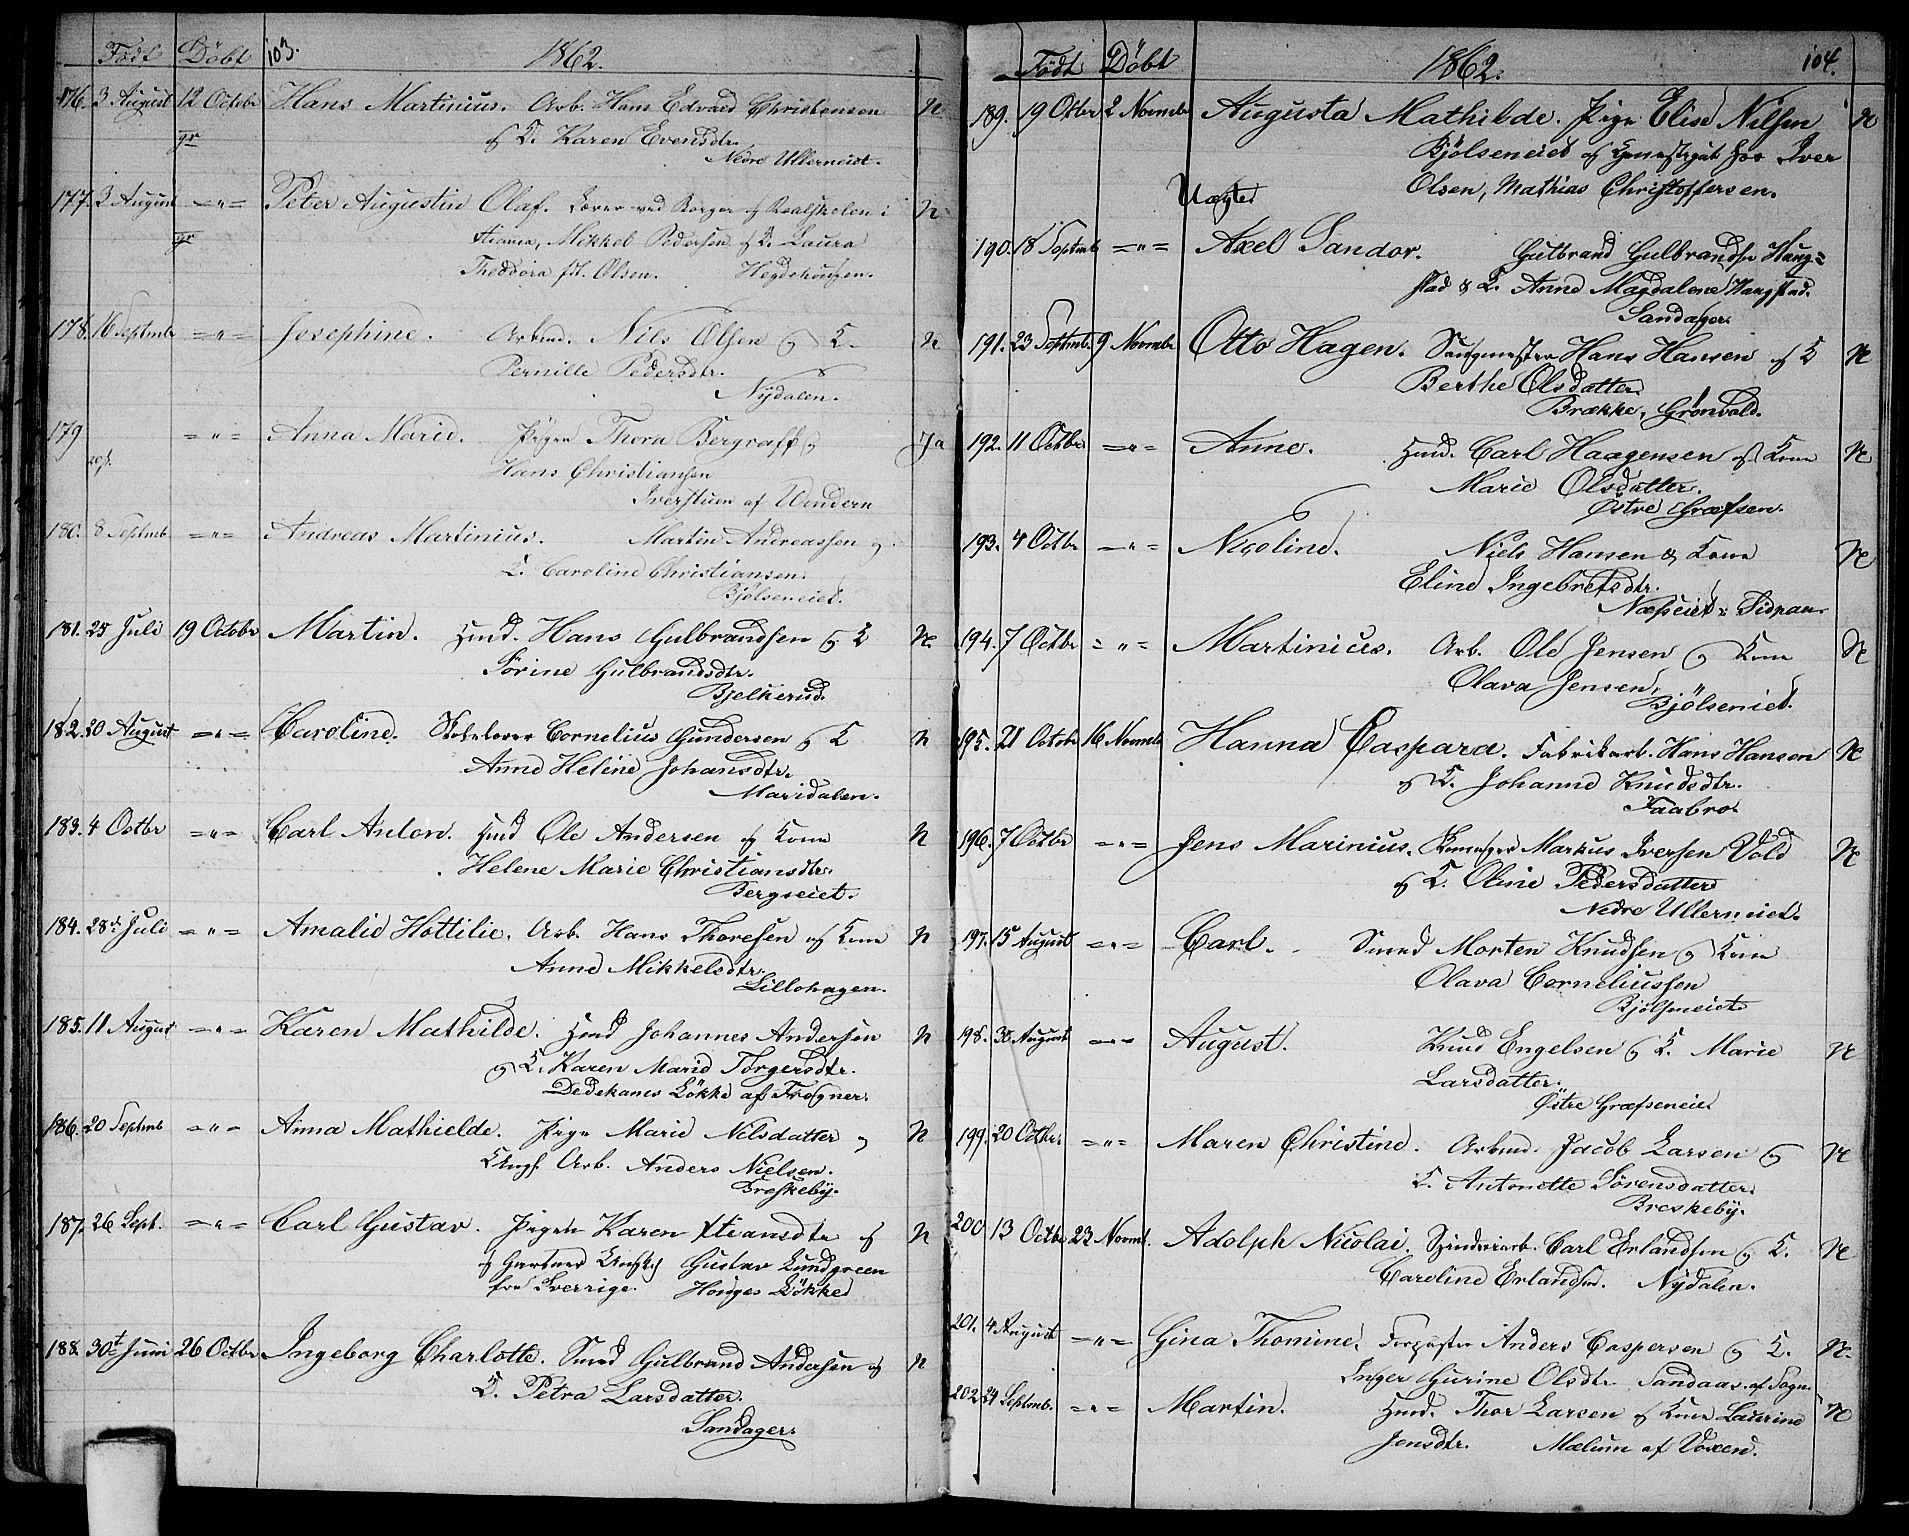 Født Döbt 103. 1862.
176. 3 August 12 Octobr Hans Martinius. Arb. Hans Edvard Christensen N
gr & K. Karen Evensdtr.
Nedre Ullerneiet.
177. 3 August —"= Peter Augustin Olaf. Lærer ved Borger & Realskolen i N
gr Xtiania, Mikkel Pedersen & K. Laura
Theodora f. Olsen. Hegdehougen.
178. 16 Septmbr ="= Josephine. Arbmd. Nils Olsen & K. N
Pernille Pedersdtr.
Nydalen.
179 ="= Anna Marie. Pigen Thora Bergraff & Ja
Hans Christiansen
af Vindern
180. 8 Septmb —"= Andreas Martinius. Martin Andreassen &
K. Caroline Christiansen.
Bjølseneiet.
181. 25 Juli 19 Octobr Martin. Hmd. Hans Gulbrandsen & K N.
Sörine Gulbrandsdtr.
Bjelkerud.
182. 20 August ="= Caroline. Skolelærer Cornelius Gundersen & K N
Anne Heline Johansdtr.
Maridalen.
183. 4 Octbr ="= Carl Anton. Hmd Ole Andersen & Kone N
Helene Marie Christiansdtr.
Bergseiet.
184. 28de Juli ="= Amalie Hottilie. Arb. Hans Thoresen & Kone N
Anne Mikkelsdtr.
Lillohagen.
185. 11 August ="= Karen Mathilde. Hmd Johannes Andersen N
& K. Karen Marie Torgersdtr.
Dedekams Lökke af Frogner.
186. 20 Septmb ="= Anna Mathielde. Pige Marie Nilsdatter & N
Ungk. Arb. Anders Nielsen.
Breskeby.
187. 26 Sept. ="= Carl Gustav. Pigen Karen Xtiansdtr & N
& Gartner Ungk. Gustav Lundgreen
fra Sverrige. Houges Lökke
188. 30t Juni 26 Octbr Ingeborg Charlotte. Smed Gulbrand Andersen & N
K. Petra Larsdatter.
Sandager.
Födt Döbt 1862. 104.
189. 19 Octbr 2 Novmbr Augusta Mathilde. Pige Elise Nilsen N
Bjölseneiet & hos Iver
Olsen, Mathias Christoffersen.
Uægte
190. 18 Septmb ="= Axel Sandor. Gulbrand Gulbrandsen Haug=
stad & K. Anne Magdalene Haugstad.
Sandager.
191. 23 Septmb. 9 Novmbr Otto Hagen. Saugmester Hans Hansen & K N
Berthe Olsdatter
Brække, Grønvold.
192. 11 Octbr ="= Anne. Hmd. Carl Haagensen & Kone N
Marie Olsdatter.
Østre Græfsen.
193. 4 Octbr ="= Nicoline. Niels Hansen & Kone N
Eline Ingebretsdtr.
Næsseiet
194. 7 Octbr ="= Martinius. Arb. Ole Jensen & Kone N
Olava Jensen,
Bjölseniet.
195. 21 Octobr 16 Novmb Hanna Caspara. Fabrikarb. Hans Hansen N
& K. Johanne Knudsdtr.
Faabro.
196. 7 Octbr ="= Jens Marinius. Markus Iversen Vold N
& K. Oline Pedersdatter
Nedre Ullerneiet.
197. 15 August ="= Carl. Smed Morten Knudsen & Kone
Olava Corneliussen
Bjölseneiet
198. 30 August ="= August. Knud Engelsen & K. Marie N
Larsdatter.
Østre Græfseneie
199. 20 Octbr ="= Maren Christine. Arbmd. Jacob Larsen & N
K. Antonette Sörensdatter.
Breskeby.
200 13 Octbr 23 Novmb. Adolph Nicolai. Spinderiarb. Carl Erlandsen & K. N
Caroline Erlandsen. Nydalen.
201. 4 August ="= Gina Thomine. Forpagter Anders Caspersen & K. N.
Inger Gurine Olsdtr. Sandaas af Sogn
202. 24 Septmb. ="= Martin. Hmd. Thor Larsen & Kone Laurine N
Jensdtr. Mælum af Voxen.